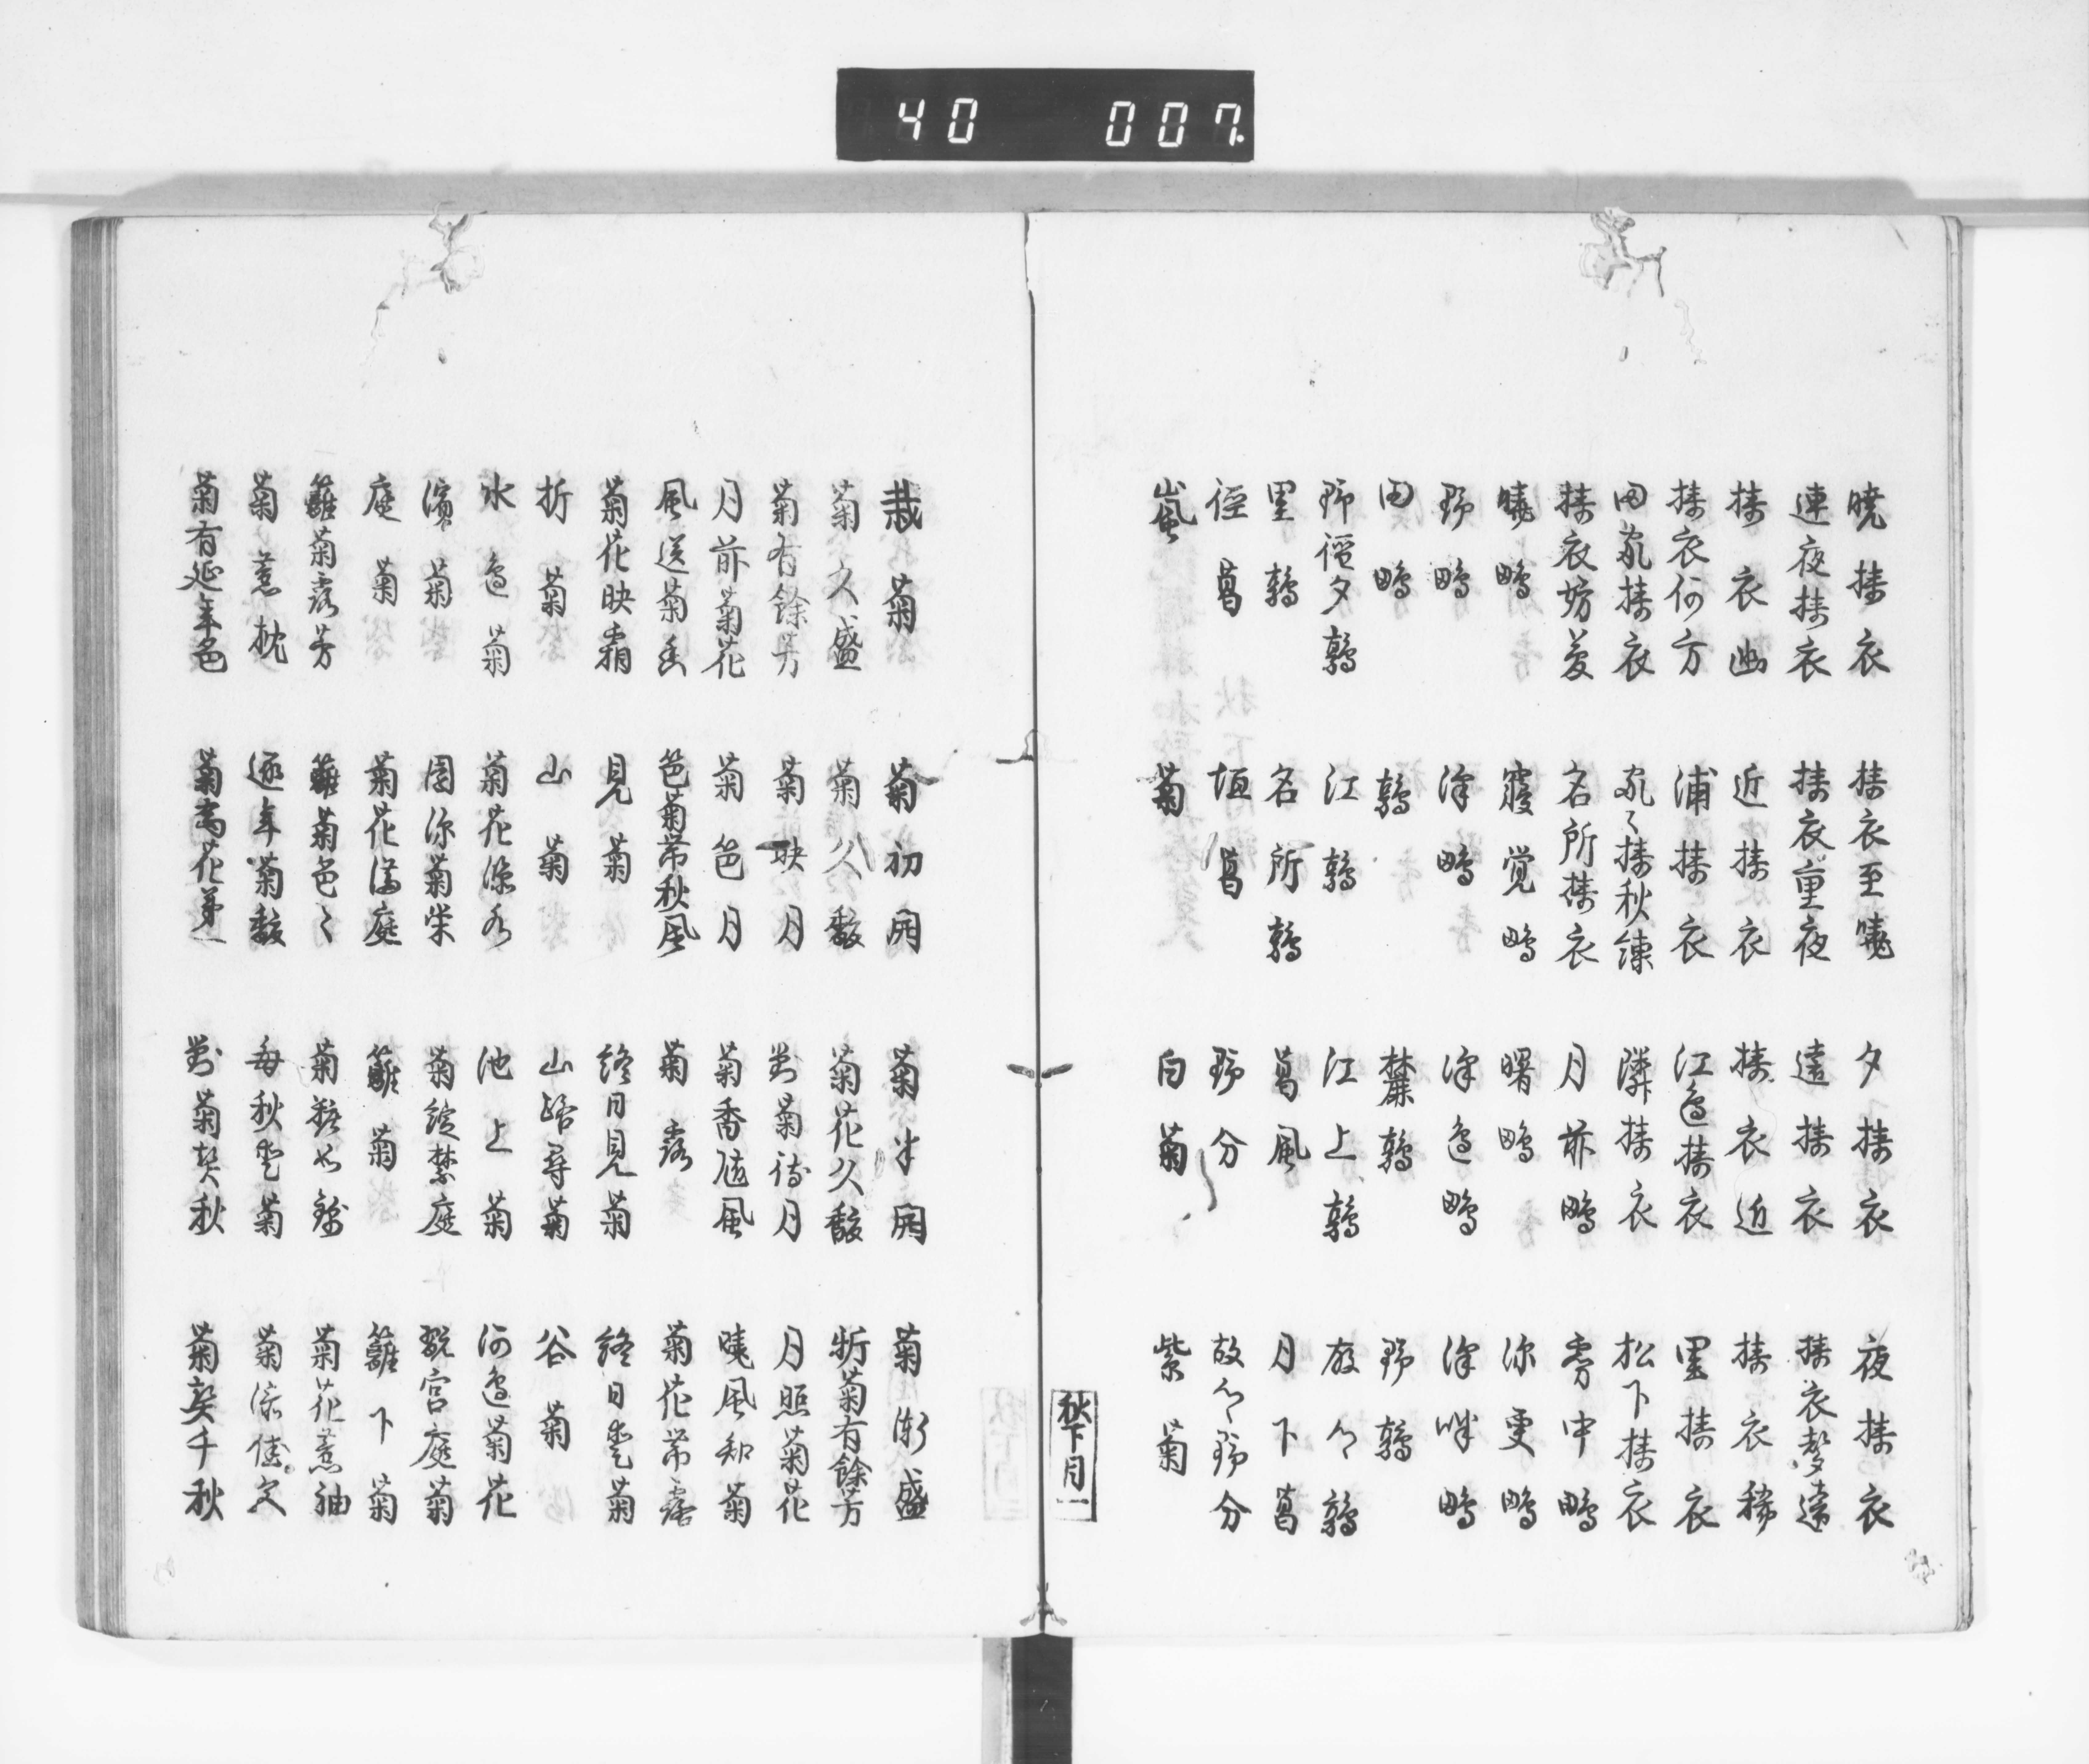 40 007
暁擣衣 擣衣至暁 夕擣衣 夜擣衣
連夜擣衣 擣衣重夜 遠擣衣 擣衣聲遠
擣衣幽 近擣衣 擣衣近 擣衣稀
擣衣何方 浦擣衣 江邊擣衣 里擣衣
田家擣衣 家々擣秋練 隣擣衣 松下擣衣
擣衣妨夢 名所擣衣 月前鴫 雰中鴫
暁鴫 寝覚鴫 曙鴫 深更鴫
野鴫 澤鴫 澤邊鴫 澤畔鴫
田鴫 鶉 麓鶉 野鶉
野徑夕鶉 江鶉 江上鶉 故郷鶉
里鶉 名所鶉 葛風 月下葛
徑葛 垣葛 野分 故郷野分
嵐 菊 白菊 紫菊
秋下目一
栽菊 菊初開 菊半開 菊漸盛
菊久盛 菊久馥 菊花久馥 折菊有餘芳
菊有餘芳 菊映月 對菊待月 月照菊花
月前菊花 菊色月 菊香随風 暁風知菊
風送菊香 笆菊帯秋風 菊露 菊花帯露
菊花映霜 見菊 終日見菊 終日愛菊
折菊 山菊 山路尋菊 谷菊
水邊菊 菊花添水 池上菊 河邊菊花
濱菊 園深菊栄 菊綻禁庭 翫宮庭菊
庭菊 菊花満庭 籬菊 籬下菊
籬菊露芳 籬菊色々 菊粧如錦 菊花薫袖
菊薫枕 逐年菊馥 毎秋愛菊 菊佳友
菊有延年色 菊為花第一 對菊契秋 菊契千秋